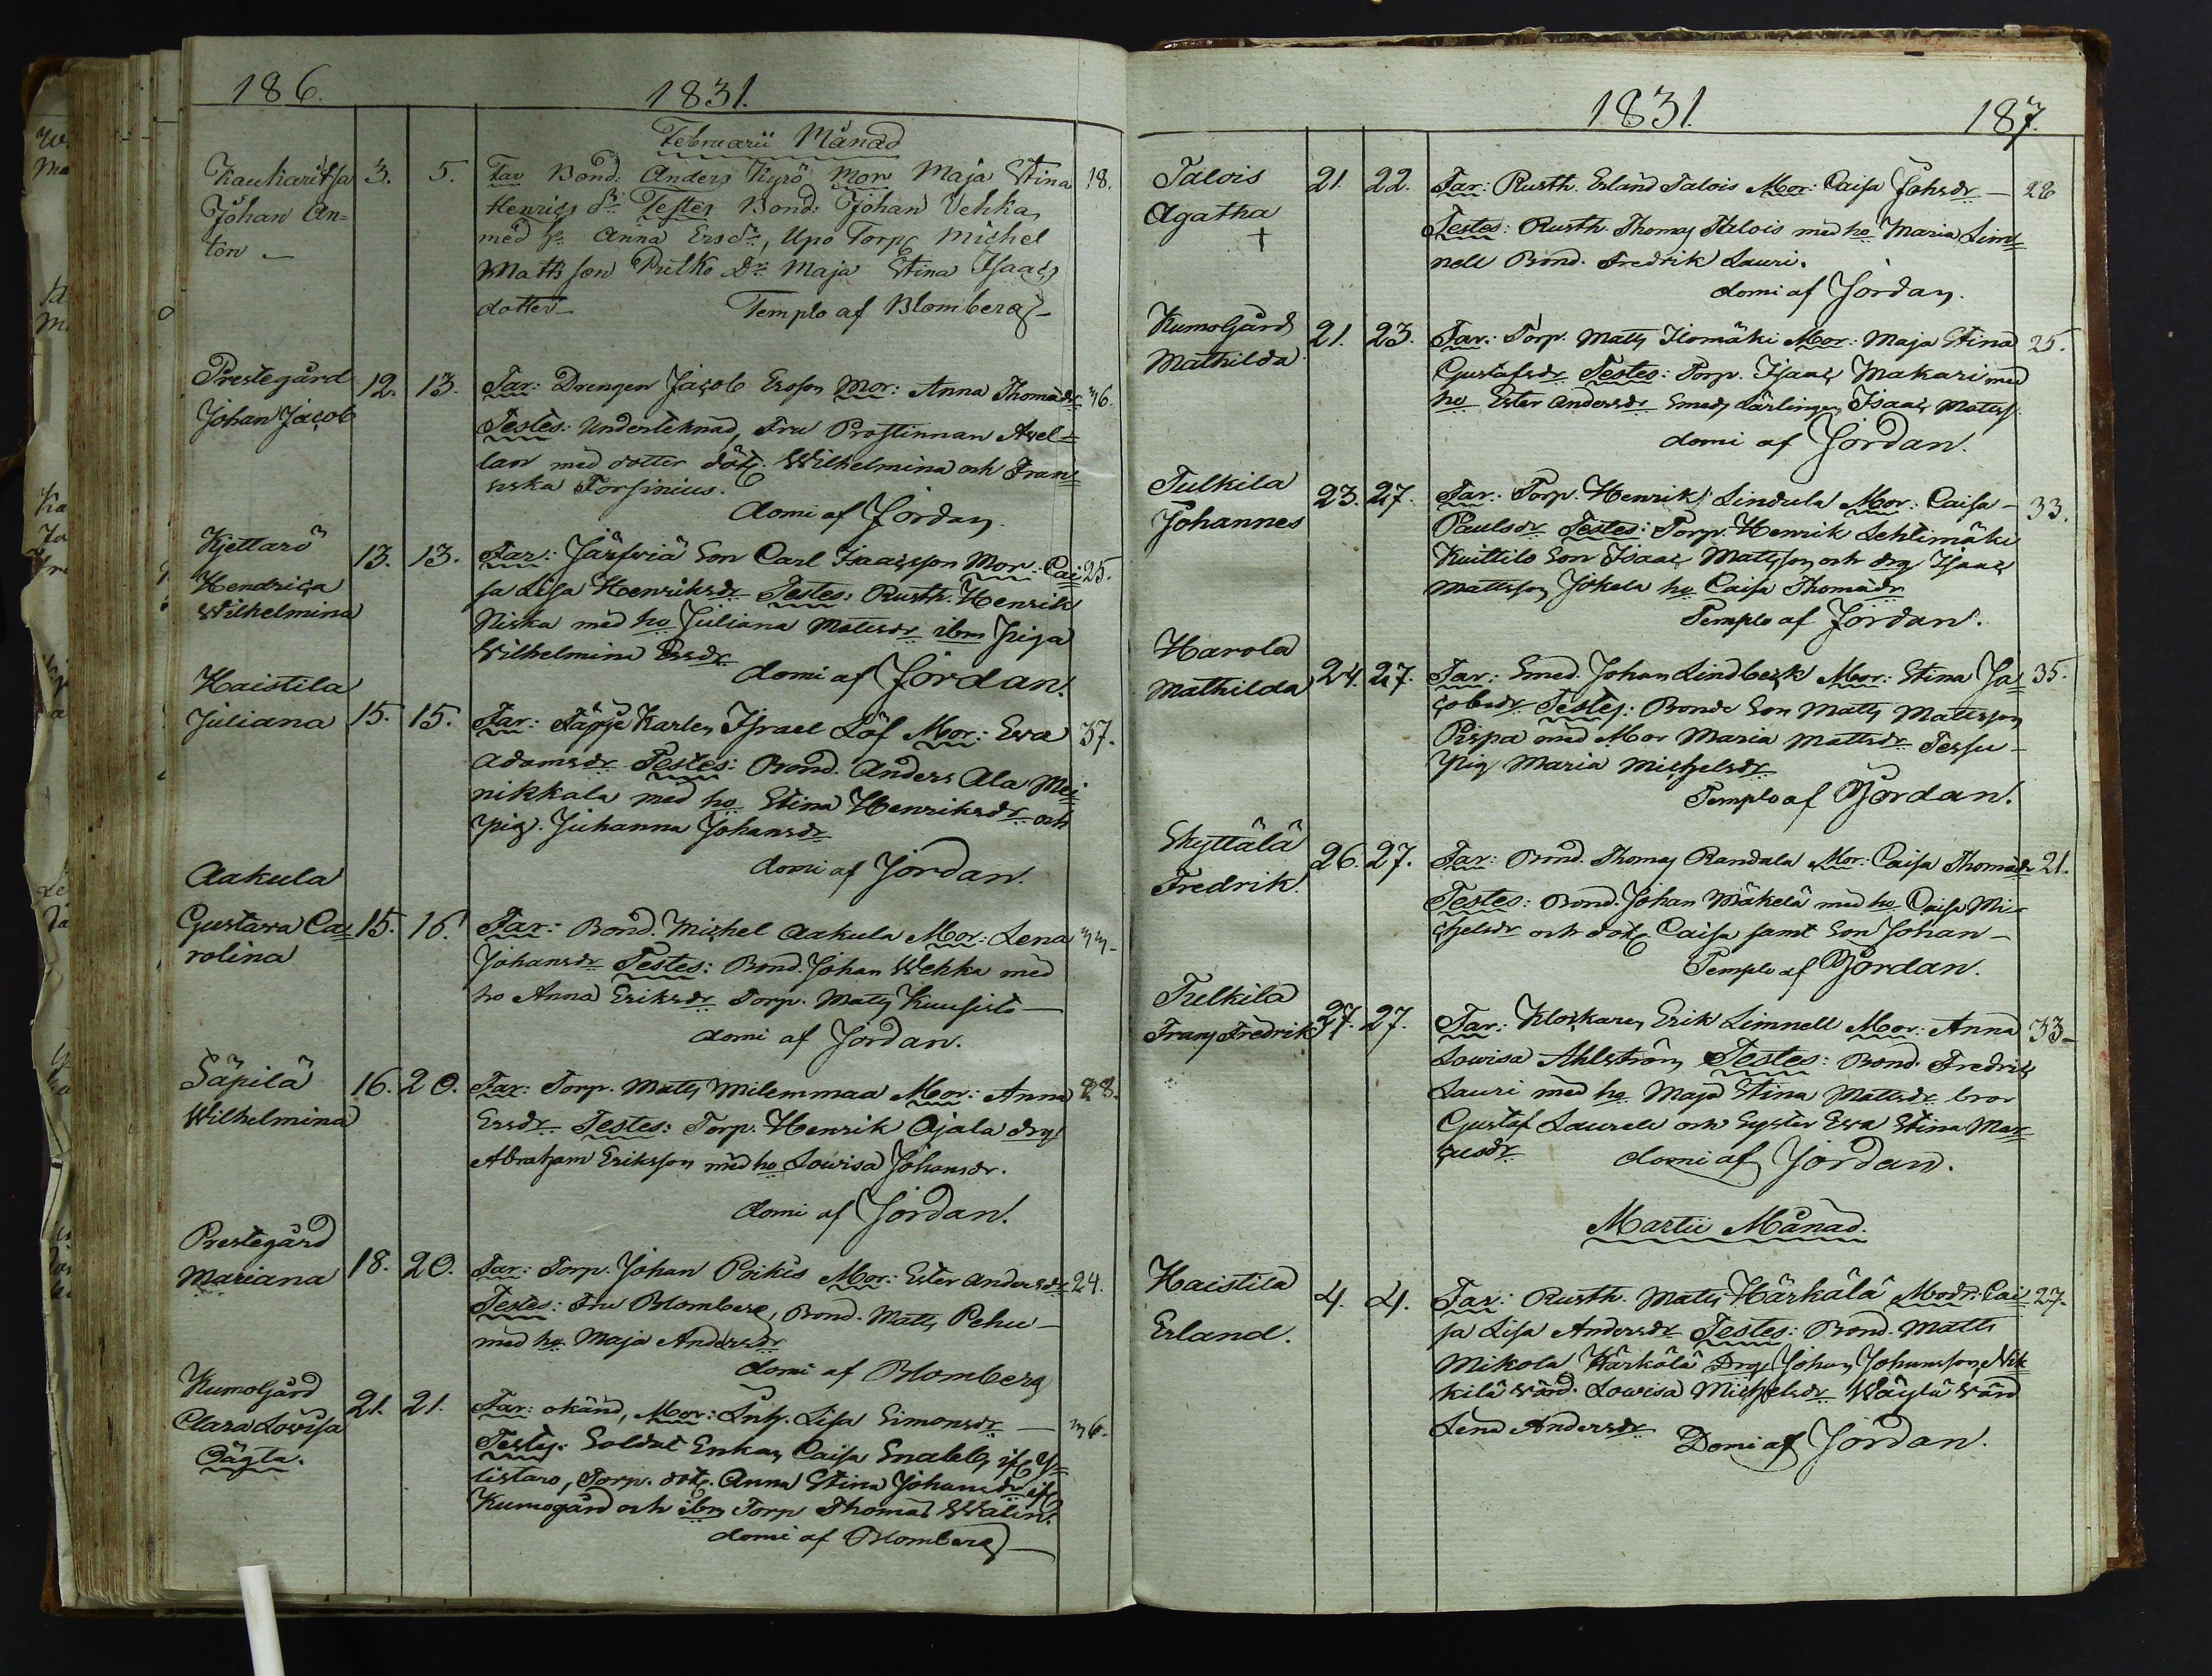 186.
1831.
Februarii Månad
Kaukaritsa 3. 5. Far Bond: Anders Kyrö Mor Maja Stina 18.
Johan An= Henrics dr Testes Bond: Johan Vehka
ton — med ho Anna Ersdr, Upo Torp Michel
Matts son Pulko Dr Maja Stina Isaacs
dotter — Templo af Blomberg —
Prestegård 12. 13. Far: Drengen Jacob Ersson Mor: Anna Thomädr 36.
Johan Jacob
Testes: Underteknad, Fru Prostinnan Avel=
lan med dotter Wilhelmina och Fran=
siska Forsinius.
domi af Jordan
Kjettarö 13. 13. Far: Järfviä Son Carl Isaacsson Mor: Cai 25.
Hendrica sa Lisa Henriksdr Testes: Rusth. Henrik
Wilhelmina Niska med ho Juliana Mattsdr ibm Piga
Wilhelmina Ersdr
domi af Jordan.
Haistila
Juliana 15. 15. Far: Karlen Israel Löf Mor: Eva 37.
Adamsdr Testes: Bond. Anders Ala Mei
nikkala med ho Stina Henriksdr och
Pig. Juhanna Johansdr
domi af Jordan.
Aakula
Gustava Ca= 15. 16. Far: Bond. Michel Aakula Mor: Lena 33.
rolina Johansdr Testes: Bond. Johan Wehka med
ho Anna Eriksdr Torp. Matts Kuusisto —
domi af Jordan.
Säpilä 16. 20. Far: Torp. Matts Milemmaa Mor: Anna 28.
Wilhelmina Ersdr Testes: Torp. Henrik Ojala drg
Abraham Eriksson med ho Lowisa Johansdr.
domi af Jordan.
Prestegård
Mariana 18. 20. Far: Torp. Johan Poikis Mor: Ester Andersdr 24.
Testes: Fru Blomberg, Bond. Matts Pehu —
med ho Maja Andersdr
domi af Blomberg
Kumogård 21. 21. Far: okänd, Mor: Inh. Lisa Simonsdr — 36.
Clara Lovisa
Oägta. Testes: Soldat Enkan Caisa Snabb if Y=
listaro, Torp. dotr Anna Stina Johansdr if
Kumogård och ibm Torp Thomas Walin.
domi af Blomberg —
1831.
187.
Talois 21. 22. Far: Rusth. Erland Talois Mor: Caisa Johsdr — 26
Agatha Testes: Rusth. Thomas Talois med ho Maria Lim=
† nell Bond. Fredrik Lauri.
domi af Jordan.
Kumogård 21. 23. Far: Torp. Matts Ilomäki Mor: Maja Stina 25.
Mathilda Gustafsdr Testes: Torp. Isaac Makari med
ho Ester Andersdr Smeds Lärlingen Isaac Mattss.
domi af Jordan.
Tulkila 23. 27. Far: Torp. Henrik Lindula Mor: Caisa — 33.
Johannes Paulsdr Testes: Torp. Henrik Lehtimäki
Kuittilo Son Isaac Mattsson och drg Isaac
Mattsson Jokela ho Caisa Thomädr
Templo af Jordan.
Harola
Mathilda 24. 27. Far: Smed. Johan Lindbeck Mor: Stina Ja= 35.
cobsdr Testes: Bonde Son Matts Mattsson
Pispa med Mor Maria Mattsdr Tessu —
Pig Maria Michelsdr
Templo af Jordan.
Skyttälä 26. 27. Far: Bond. Thomas Randala Mor: Caisa Thomädr 21.
Fredrik. Testes: Bond. Johan Mäkelä med ho Caisa Mi=
chelsdr och dotr Caisa samt Son Johan —
Templo af Jordan.
Tulkila
Frans Fredrik 27. 27. Far: Klockaren Erik Limnell Mor: Anna 33.
Lowisa Ahlström Testes: Bond. Fredrik
Lauri med ho Maja Stina Mattsdr bror
Gustaf Laurell och Syster Eva Stina Mar=
cusdr domi af Jordan.
Martii Månad.
Haistila 4. 4. Far: Rusth. Matts Härkälä Modr: Cai 27.
Erland. sa Lisa Andersdr Testes: Bond. Matts
Mikola Härkälä Drg Johan Johansson Nik
kilä Wärd. Lowisa Michelsdr Wärd
Lena Andersdr Domi af Jordan.